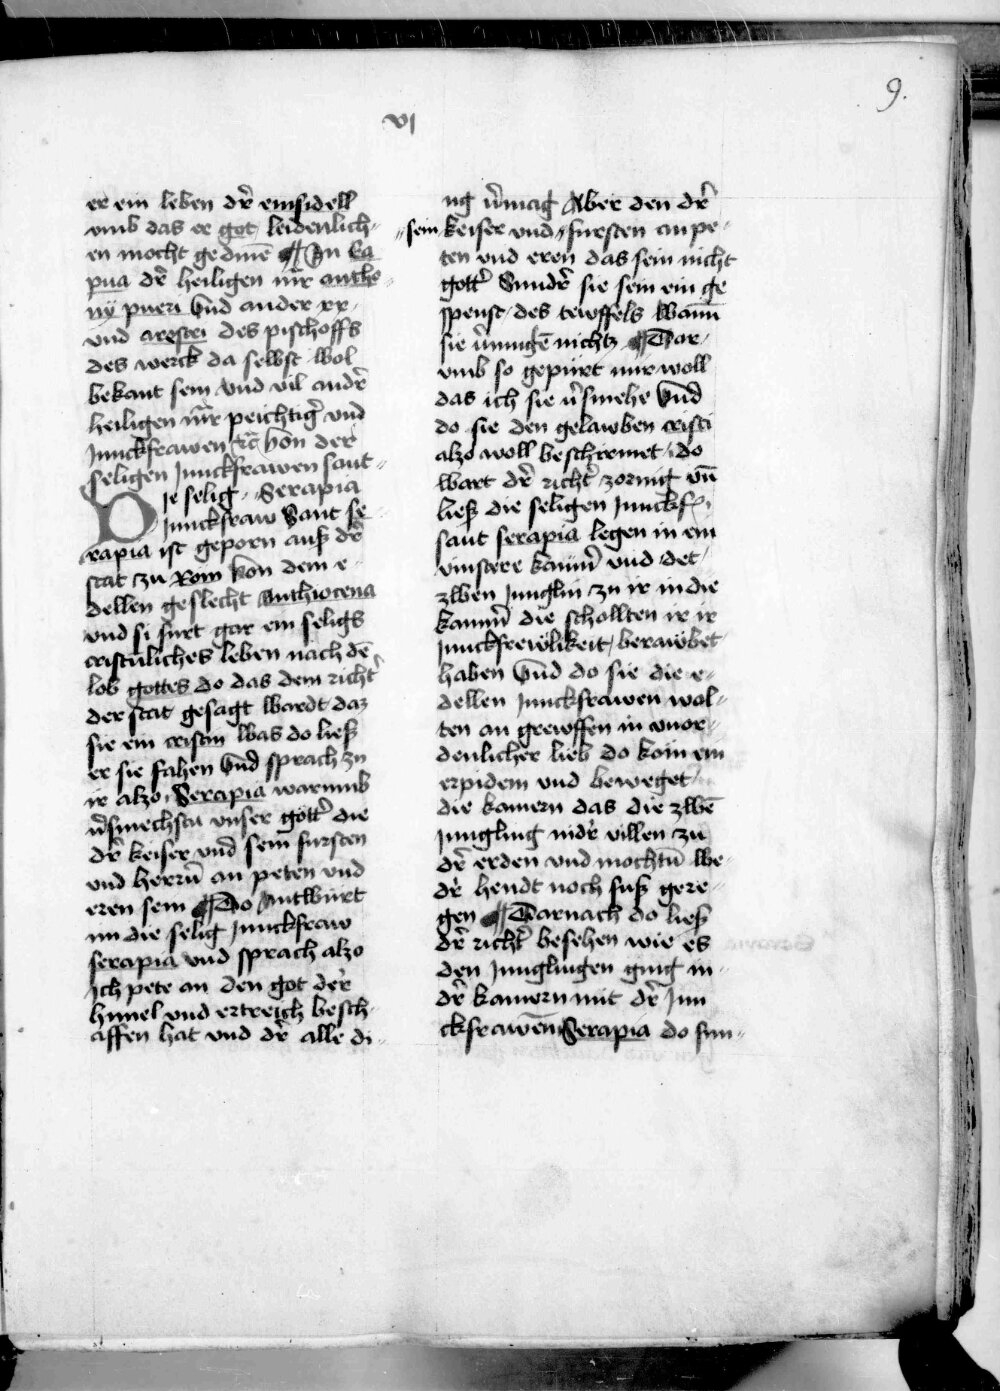 9.
vj
er ein leben dr̄ einsidell
vmb das er got leidenlich-
en mocht gedinē In Ca
pua dr̄ heiligen mr̄r anthe-
nÿ pueri Vnd ander xx-
vnd arestei des pischoffs
des werck da selbst wol
bekant sein vnd vil andr̄
heiligen mr̄r peichtigr̄ vnd
Junckfrawen etc̄ Von der
seligen Junckfrawen sant-
Die selig Serapia
Junckfraw Sant se-
rapia ist geporn auß dr̄
stat zu Rom Von dem e-
dellen geslecht Anthiocena
vnd si furt gar ein seligs
cristnliches leben nach dē
lob gottes do das dem richtr̄
der stat gesagt wardt daz
sie ein cristin was do ließ
er sie fahen Vnd sprach zu
ir alzo Serapia warumb
v̄smechstu vnser gottr̄ die
dr̄ keiser vnd sein fursten
vnd herrn̄ an peten vnd
eren sein Do Antwurt
im die selig Junckfraw
serapia vnd sprach alzo
Ich pete an den got der
himel vnd ertreich besch-
affen hat vnd dr̄ alle di-
ng v̄mag Aber den dr̄
sein keiser vnd fursten an pe-
ten vnd eren das sein nicht
gottr̄ Sundr̄ sie sein ein ge
spenst des tewffels Wann̄
sie v̄mugē nichtz Dar-
vmb so gepürt mir woll
das ich sie v̄smehe Vnd
do sie den gelawben cristi
alzo woll beschirmet do
wart dr̄ richtr̄ zornig vn̄
ließ die seligen Junckf
sant serapia legen in ein
vinstere kamr̄ vnd det
zwen Junglin zu ir in die
kamr̄ die schollten ir ir
Junckfrewlikeit berawbet
haben Vnd do sie die e-
dellen Junckfrawen wol-
ten an grewffen in vnor-
denlicher lieb do kom ein
erpidem vnd beweget
die kamern das die zwē
Jungling nidr̄ villen zu
dr̄ erden vnd mochtn̄ we-
dr̄ hendt noch fuß gere-
gen Darnach do ließ
dr̄ richtr̄ besehen wie es
den Junglingen ging in-
dr̄ kamern mit dr̄ Jun
ckfrawen Serapia do fun-